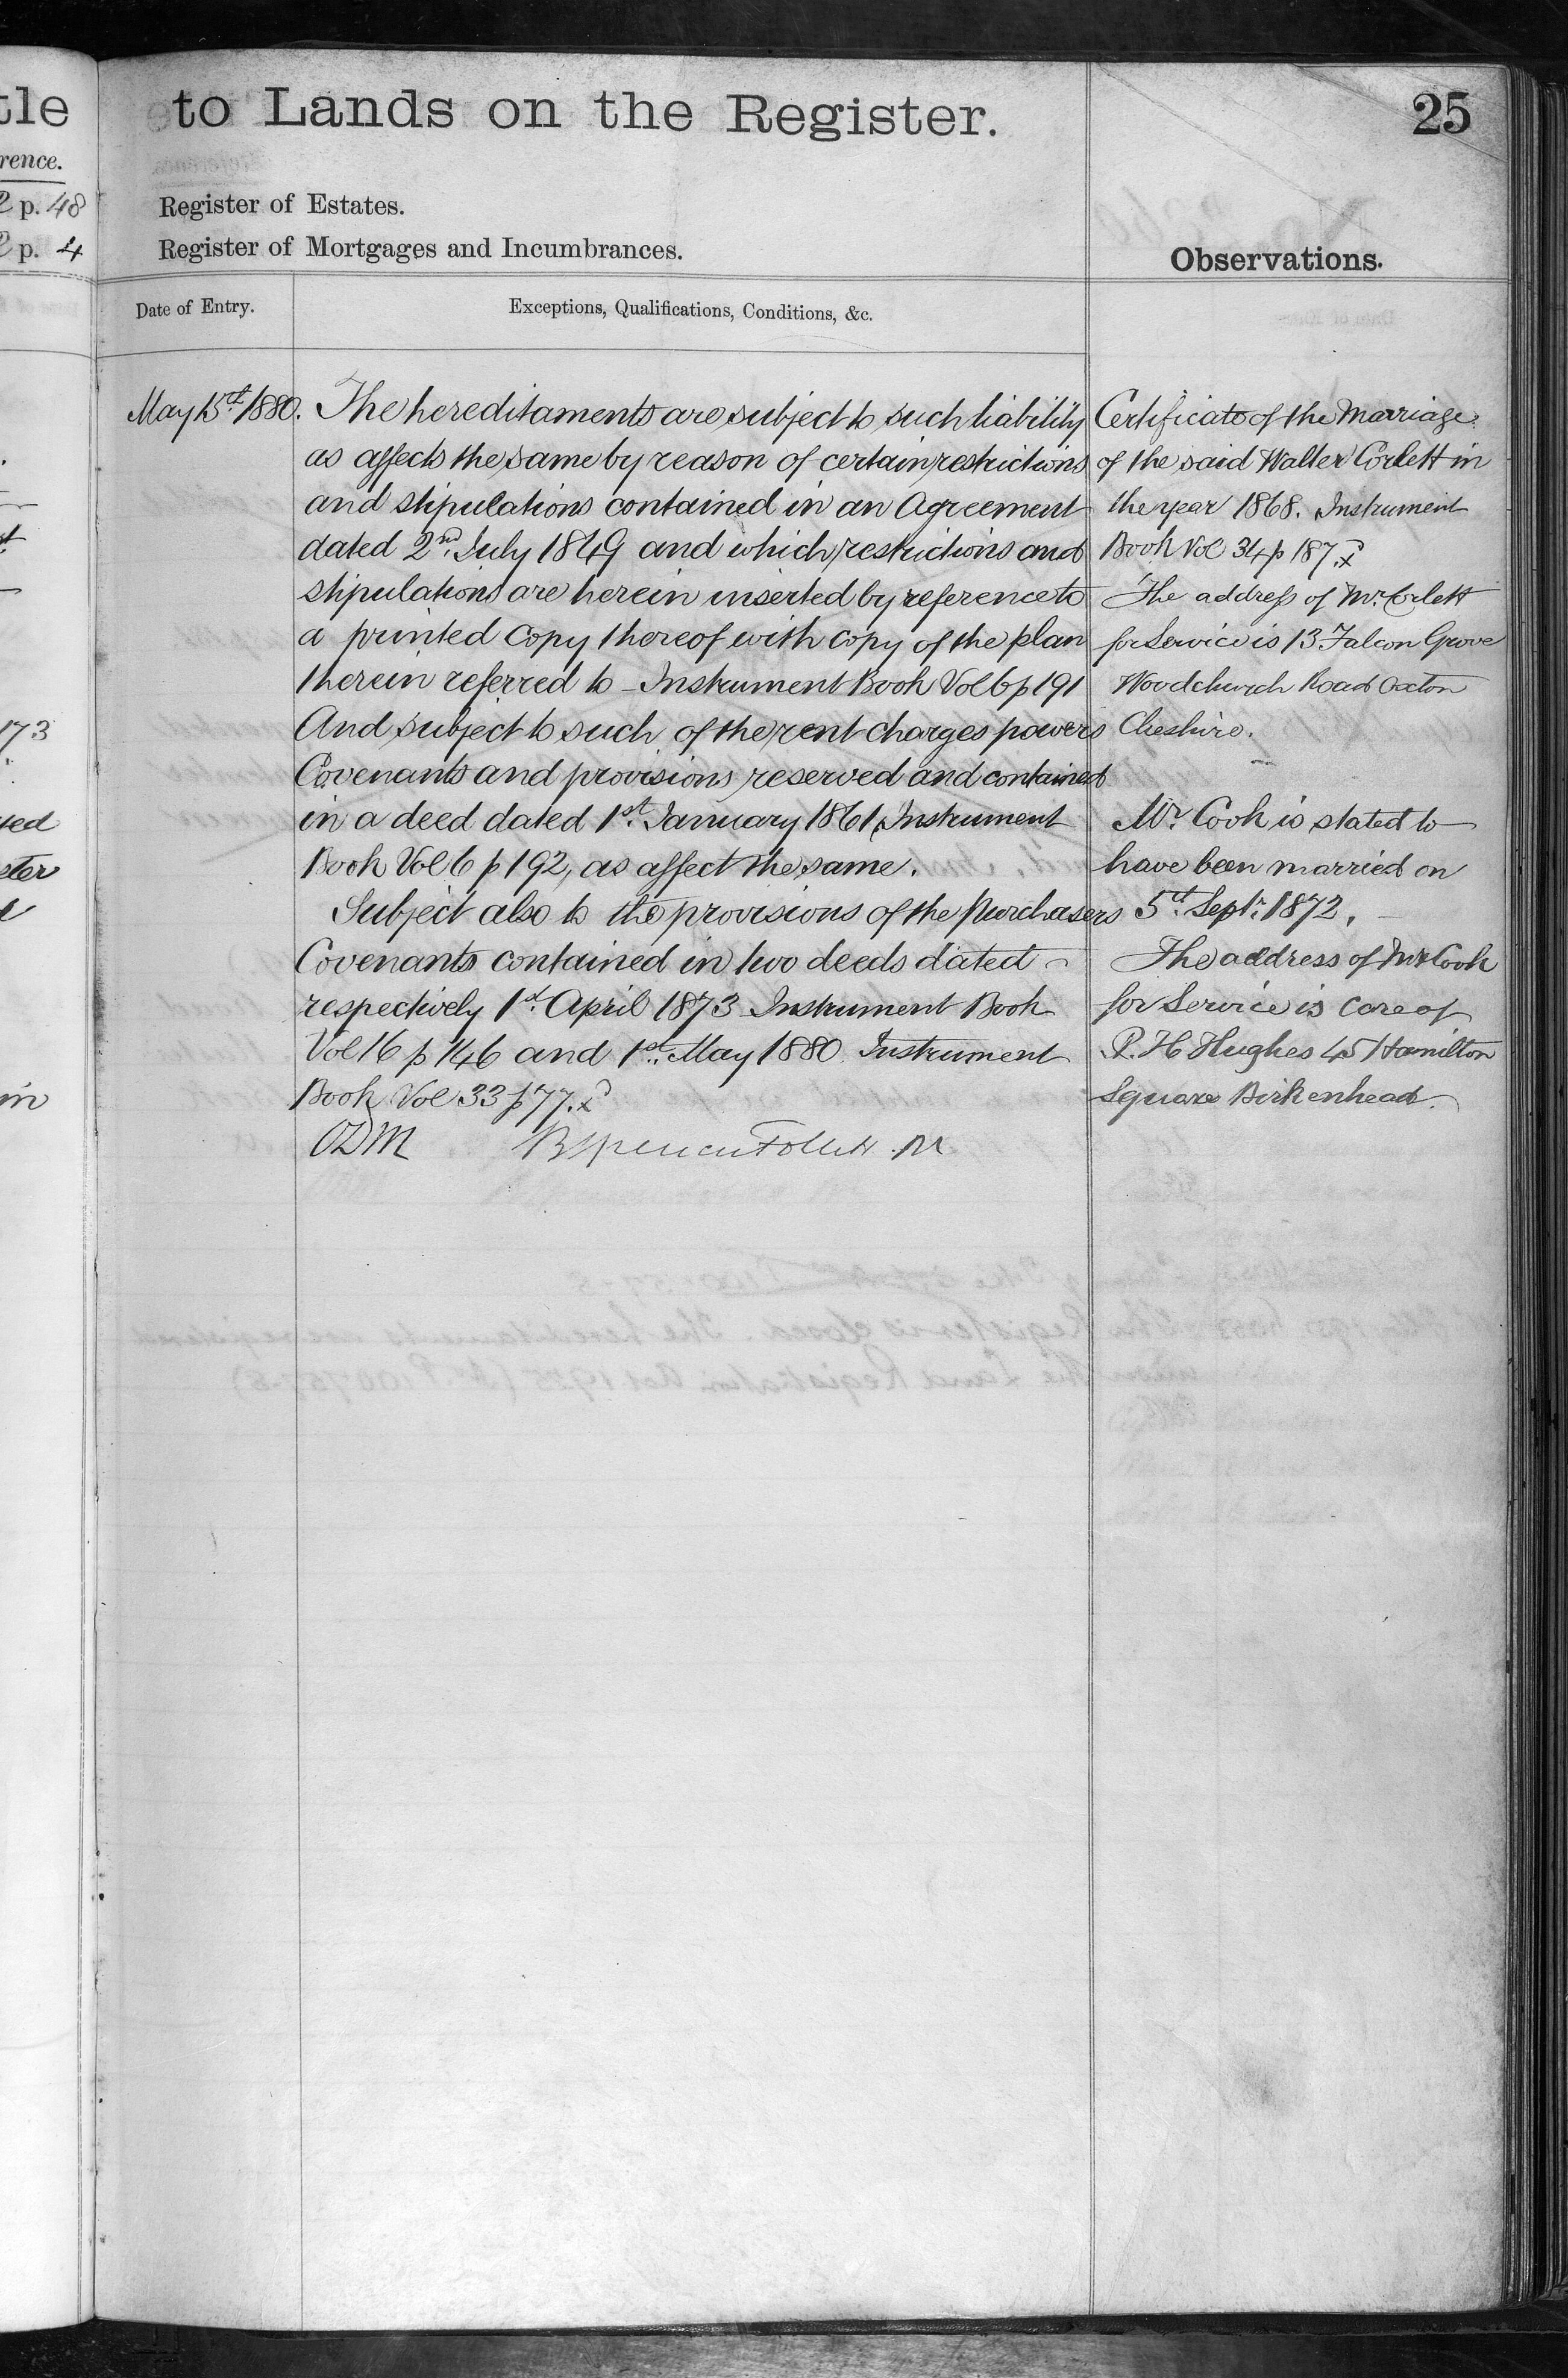 tle
rence.
p. 48
p. 4
173
in
to Lands on the Register.
25
Register of Estates.
Register of Mortgages and Incumbrances.
Observations.
Date of Entry.
Exceptions, Qualifications, Conditions, &c.
May 15th 1880. The hereditaments are subject to such liability
as affects the same by reason of certain restrictions
and stipulations contained in an Agreement
dated 2nd July 1849 and which restrictions and
stipulations are herein inserted by reference to
a printed copy thereof with copy of the plan
therein referred to - Instrument Book Vol 6 p 191
And subject to such of the rent charges powers
Covenants and provisions reserved and contained
in a deed dated 1st January 1861, Instrument
Book Vol 6 p 192, as affect the same.
Subject also to the provisions of the purchasers
Covenants contained in two deeds dated
respectively 1st April 1873 Instrument Book
Vol 16 p 146 and 1st May 1880 Instrument
Book Vol 33 p 77.
Certificate of the Marriage
of the said Walter Corlett in
the year 1868. Instrument
Book Vol 34 p 187.
The address of Mr. Corlett
for Service is 13 Falcon Grove
Woodchurch Road Oxton
Cheshire.
Mr. Cook is stated to
have been married on
5th Septr. 1872.
The address of Mr Cook
for Service is care of
R. H Hughes 45 Hamilton
Square Birkenhead.